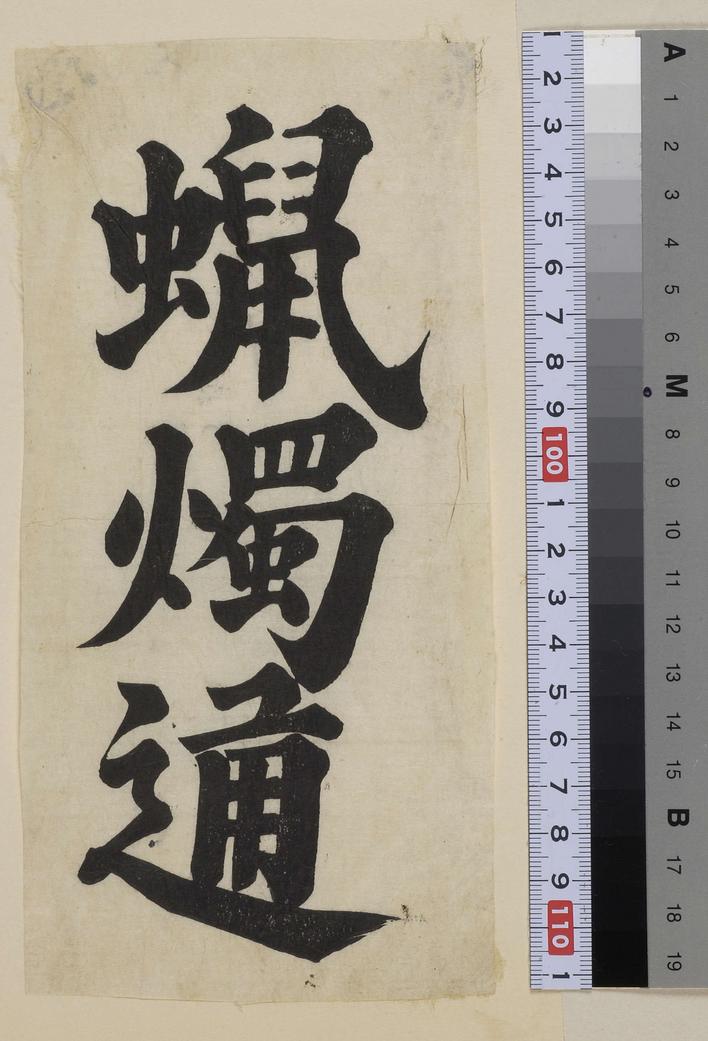 蝋燭通
1 2 3 4 5 6 7 8 9 100 1 2 3 4 5 6 7 8 9 110 1
A 1 2 3 4 5 6 M 8 9 10 11 12 13 14 15 B 17 18 19